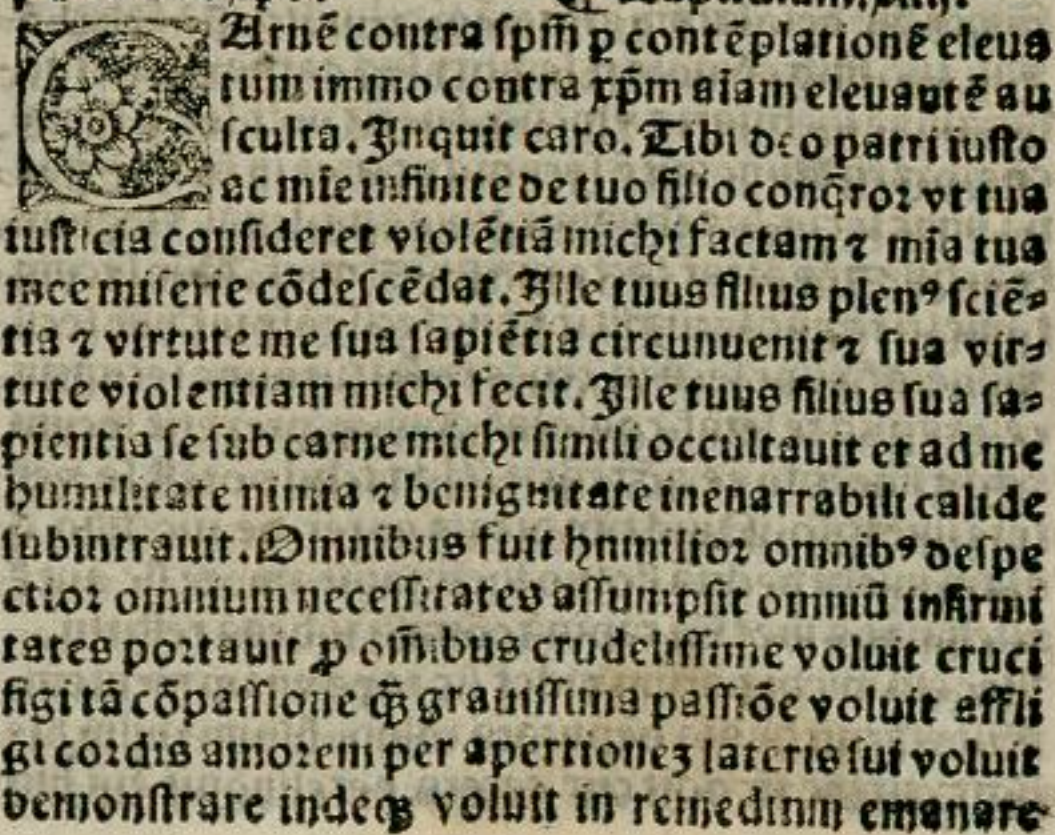 CArnē contra ſpm̄ ꝑ contēplationē eleua
tum immo contra xp̄m aīam eleuantē au
ſculta. Inquit caro. Tibi deo patri iuſto
ac mīe infinite de tuo filio conq̄ror vt tua
iuſticia conſideret violētiā michi factam ⁊ mīa tua
mee miſerie cōdeſcēdat. Ille tuus filius plenꝰ ſciē⸗
tia ⁊ virtute me ſua ſapiētia circunuenit ⁊ ſua vir⸗
tute violentiam michi fecit. Ille tuus filius ſua ſa⸗
pientia ſe ſub carne michi ſimili occultauit et ad me
humilitate nimia ⁊ benignitate inenarrabili calide
ſubintrauit. Omnibus fuit humilior omnibꝰ deſpe
ctior omnium neceſſitates aſſumpſit omniū infirmi
tates portauit ꝓ om̄ibus crudeliſſime voluit cruci
figi tā cōpaſſione qꝫ̄ grauiſſima paſſiōe voluit affli
gi cordis amorem per apertioneꝫ lateris ſui voluit
demonſtrare indeqꝫ voluit in remedium emanare